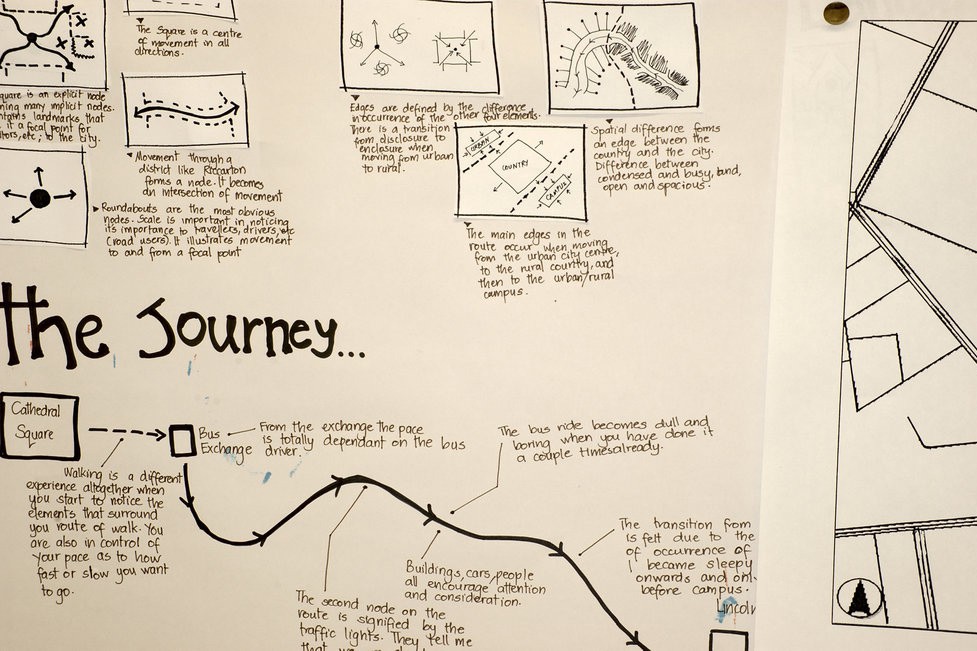 The Square is a centre
of movement in all
directions.
quare is an explicit node
ning many implicit nodes.
ntains landmarks that
it a focal point for
itors, etc, to the city.
Movement through a
district like Riccarton
forms a node. It becomes
an intersection of movement
Roundabouts are the most obvious
nodes. Scale is important in noticing
its importance to travellers, drivers, etc
(road users). It illustrates movement
to and from a focal point
Edges are defined by the difference
in occurrence of the other four elements.
There is a transition
from disclosure to
enclosure when
moving from urban
to rural.
URBAN
COUNTRY
CAMPUS
The main edges in the
route occur when moving
from the urban city centre,
to the rural country, and
then to the urban/rural
campus.
Spatial difference forms
an edge between the
country and the city.
Difference between
condensed and busy, and,
open and spacious.
the Journey...
Cathedral
Square
Bus
Exchange
From the exchange the pace
is totally dependant on the bus
driver.
The bus ride becomes dull and
boring when you have done it
a couple times already.
Walking is a different
experience altogether when
you start to notice the
elements that surround
you route of walk. You
are also in control of
your pace as to how
fast or slow you want
to go.
Buildings, cars, people
all encourage attention
and consideration.
The second node on the
route is signified by the
traffic lights. They tell me
The transition from
is felt due to the
of occurrence of
I became sleepy
onwards and onl
before campus.
Lincoln